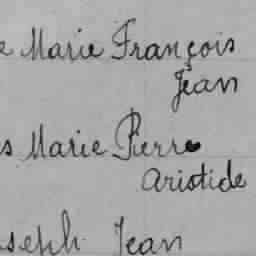 e Marie François
Jean
s Marie Pierre
Aristide
seph Jean